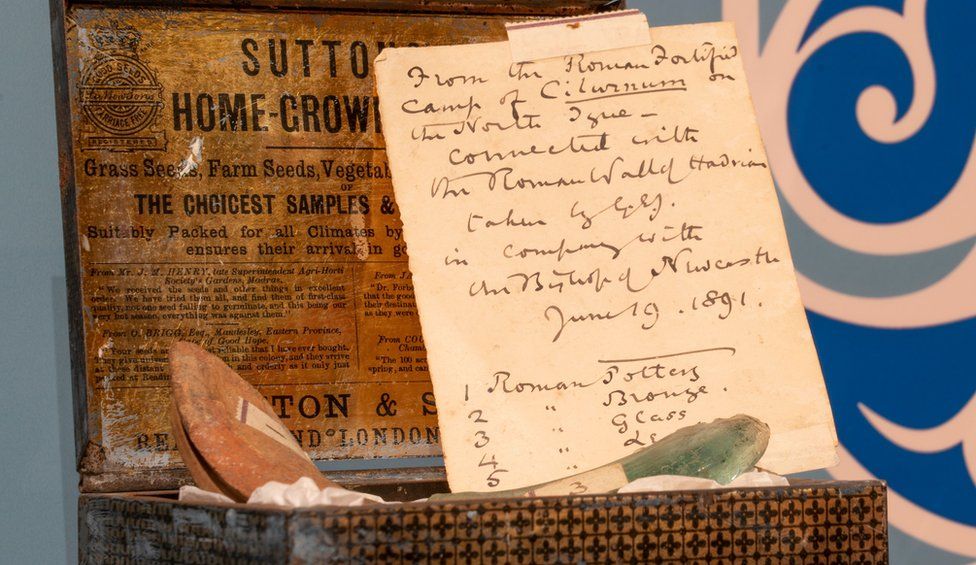 SUTTON
HOME-GROW
Grass Seeds, Farm Seeds, Vegeta
OF
THE CHOICEST SAMPLES &
Suitably Packed for all Climates by
ensures their arrival in
From Mr. J. M. HENRY, late Superintendent Agri-Horti
Society's Gardens, Madras.
"We received the seeds and other things in excellent
order. We have tried them all, and find them of first-class
quality, not one seed failing to germinate, and this being our
very hot season, everything was against them."
From O. BRIGG, Esq., Mandesley, Eastern Province,
of Good Hope.
Your seeds a reliable that I have ever bought.
They give univer in this colony, and they arrive
at these distant and orderly as it only just
packed at Readi
From JA
"Dr. Forb
that the goo
their destinat
as they were
From COU
"The 100 ac
spring, and ca
TON & S
RE ND LONDON
REGISTERED
From the Roman Fortified
camp of Cilurnum on
the North Tyne –
connected with
the Roman Wall of Hadrian
taken by
in company with
the Bishop of Newcastle
June 19. 1891.
1 Roman Pottery
2 " Bronze.
3 " Glass
4 " Le
5
3